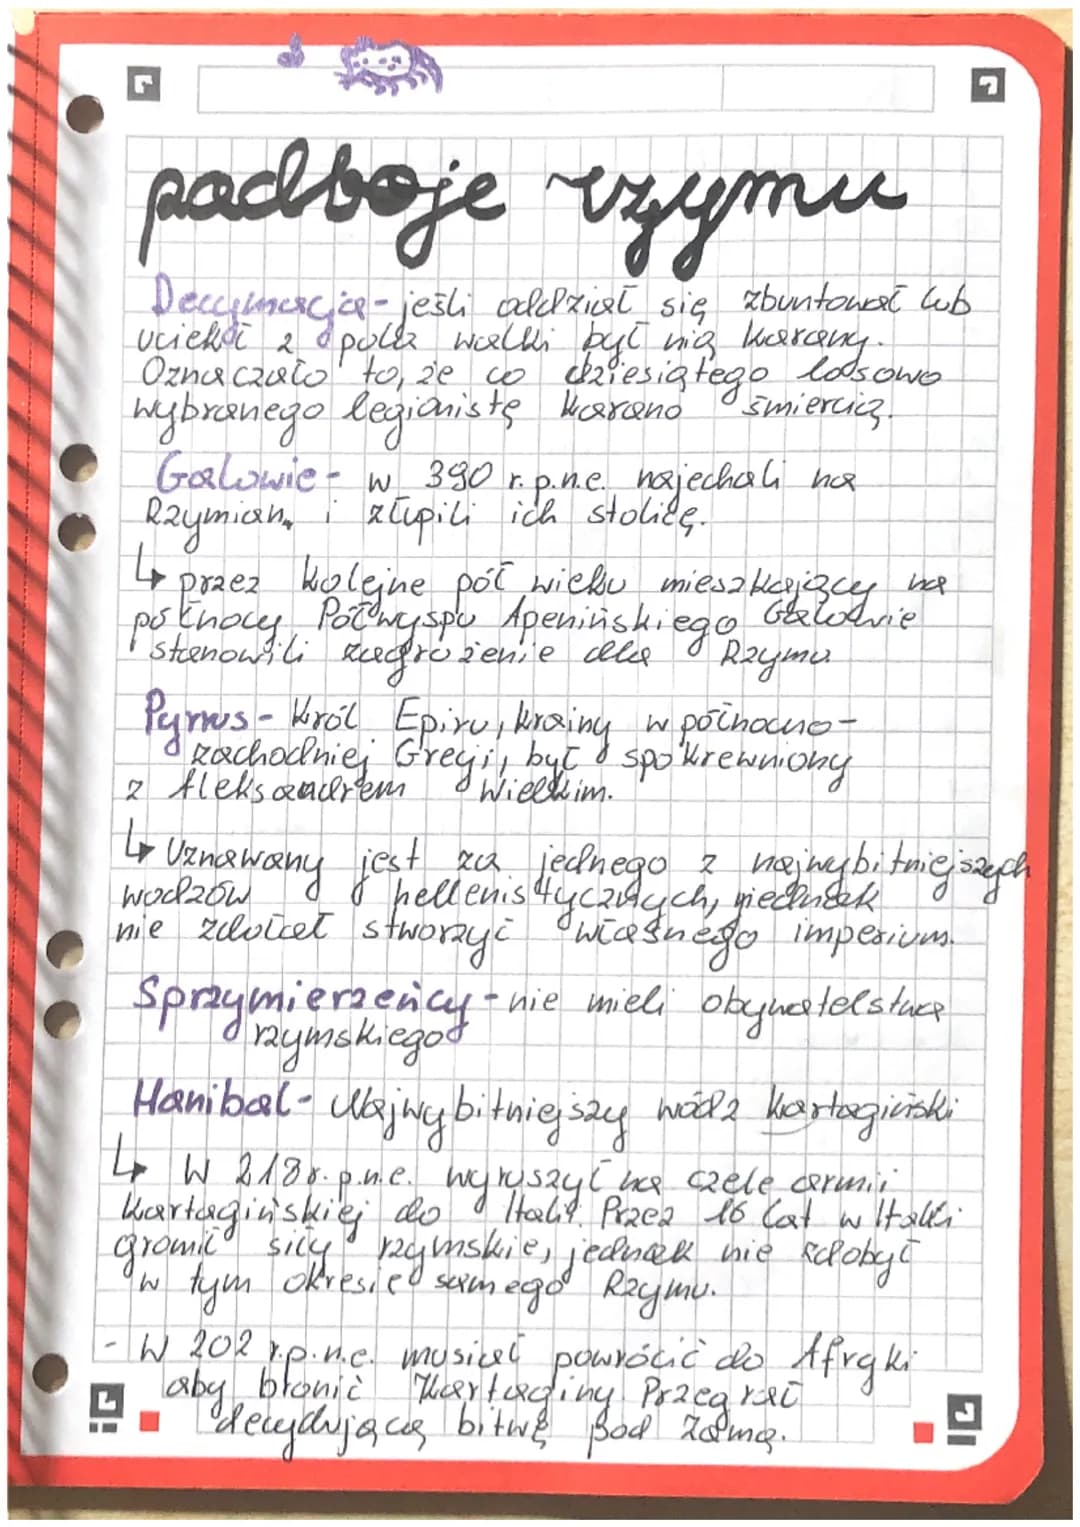 podboje rzymu
Decymacja - jeśli oddział się zbuntował lub
uciekł z pola walki był nią karany.
Oznaczało to, że co dziesiątego losowo
wybranego legionistę karano śmiercią.
Galowie - w 390 r. p.n.e. najechali na
Rzymian. i złupili ich stolicę.
↳ przez kolejne pół wieku mieszkający na
północy Półwyspu Apenińskiego Galowie
stanowili zagrożenie dla Rzymu
Pyrrus - Król Epiru, krainy w północno-
zachodniej Grecji, był spokrewniony
z Aleksandrem Wielkim.
↳ Uznawany jest za jednego z najwybitniejszych
wodzów hellenistycznych, jednak
nie zdołał stworzyć własnego imperium.
Sprzymierzeńcy - nie mieli obywatelstwa
rzymskiego
Hanibal - Najwybitniejszy wódz kartagiński
↳ W 218 r. p.n.e. wyruszył na czele armii
kartagińskiej do Italii. Przez 16 lat w Italii
gromił siły rzymskie, jednak nie zdobył
w tym okresie samego Rzymu.
- W 202 r.p.n.e. musiał powrócić do Afryki
aby bronić Kartaginy. Przegrał
decydującą bitwę pod Zamą.